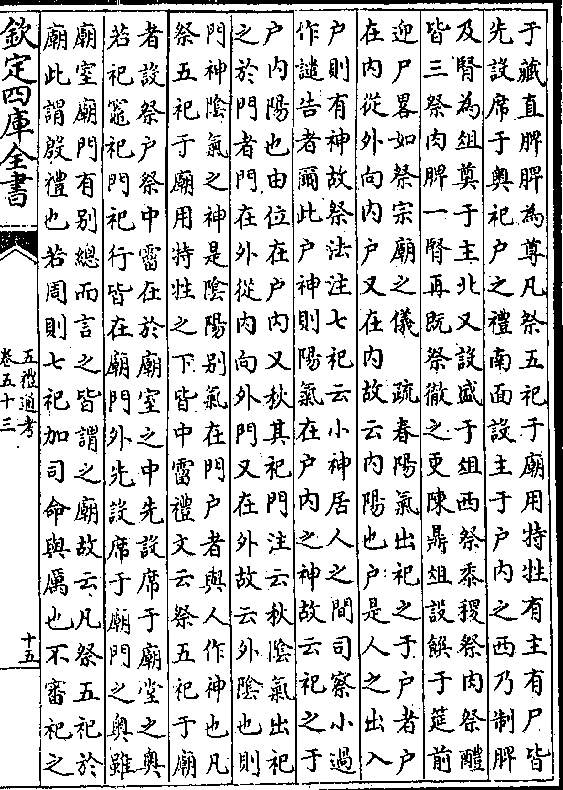 于藏直脾脾為尊凡祭五祀于廟用特牲有主有尸皆
先設席于奧祀户之禮南面設主于户内之西乃制脾
及腎為俎奠于主北又設盛于俎西祭黍稷祭肉祭醴
皆三祭肉脾一腎再既祭徹之更陳鼎俎設饌于筵前
迎尸畧如祭宗廟之儀　疏春陽氣出祀之于户者户
在内從外向内户又在内故云内陽也户是人之出入
户則有神故祭法注七祀云小神居人之間司察小過
作譴告者爾此户神則陽氣在户内之神故云祀之于
户内陽也由位在户内又秋其祀門注云秋陰氣出祀
之於門者門在外從内向外門又在外故云外陰也則
門神陰氣之神是陰陽别氣在門户者與人作神也凡
祭五祀于廟用特牲之下皆中霤禮文云祭五祀于廟
者設祭户祭中霤在於廟室之中先設席于廟堂之奧
若祀竈祀門祀行皆在廟門外先設席于廟門之奧雖
廟室廟門有别總而言之皆謂之廟故云凡祭五祀於
廟此謂殷禮也若周則七祀加司命與厲也不審祀之
欽定四庫全書
五禮通考
卷五十三
十五